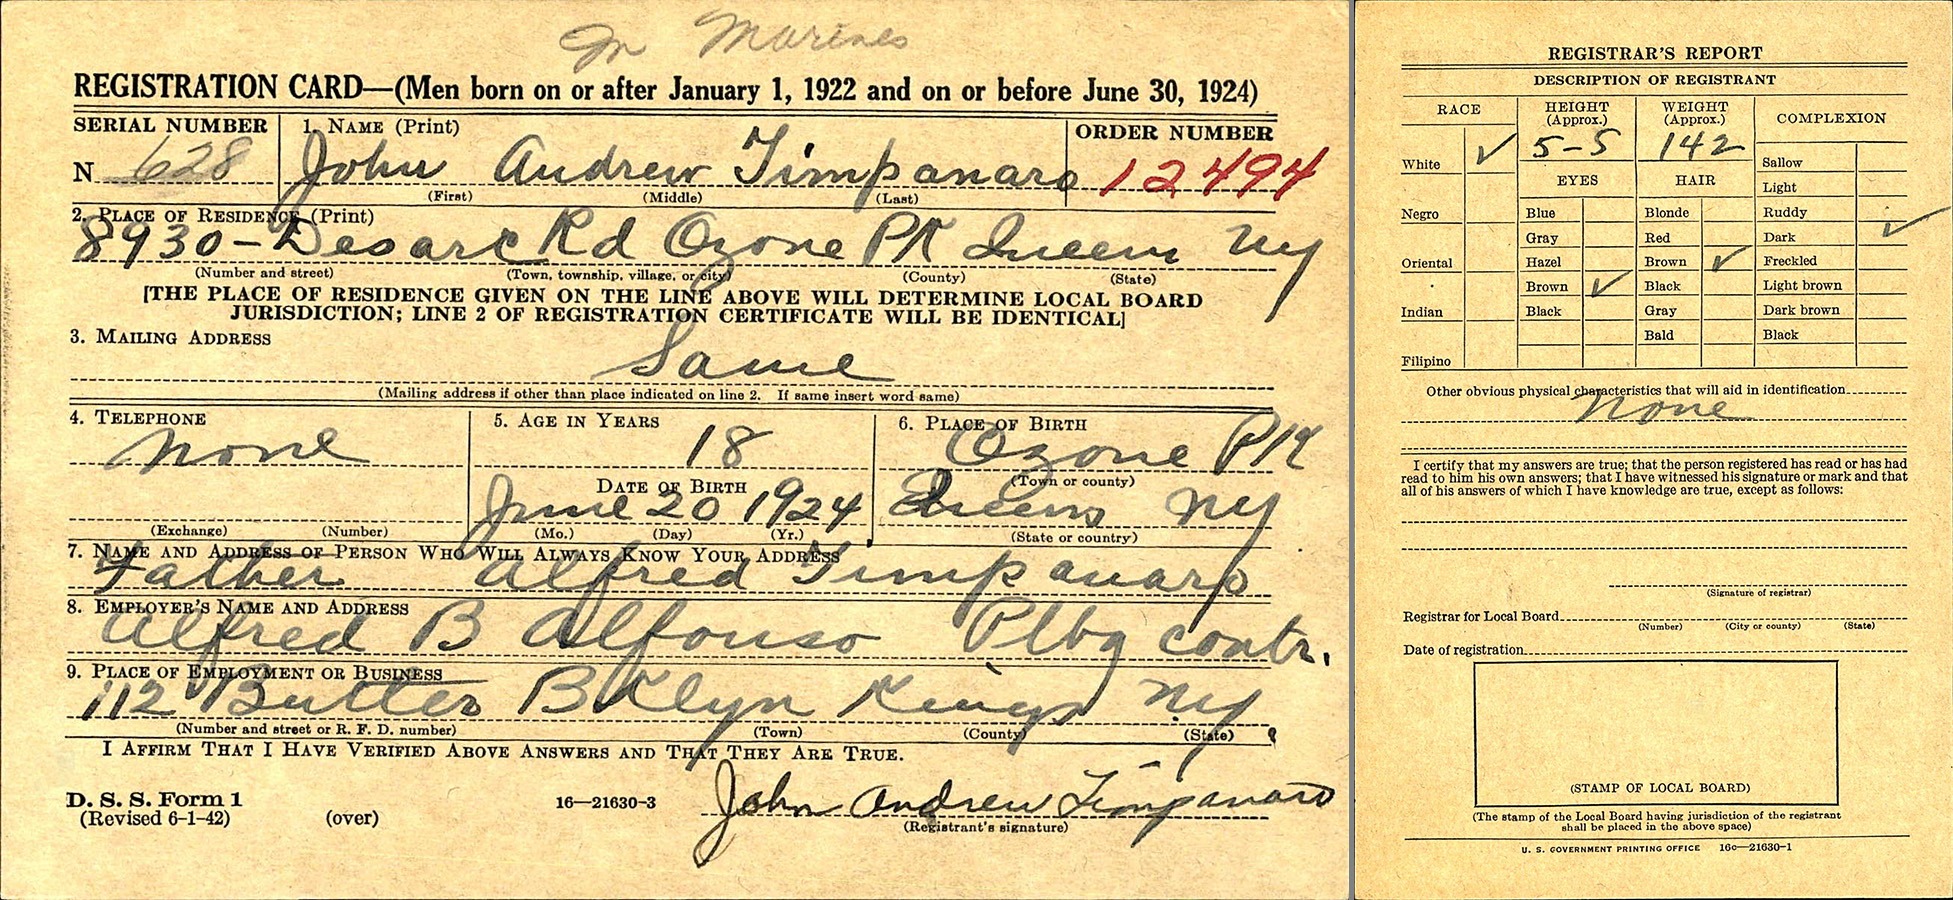 In Marines
REGISTRATION CARD—(Men born on or after January 1, 1922 and on or before June 30, 1924)
SERIAL NUMBER
1. NAME (Print)
ORDER NUMBER
N 628
John Andrew Timpanaro
12494
(First) (Middle) (Last)
2. PLACE OF RESIDENCE (Print)
8930 - Desarc Rd Ozone PK Queens NY
(Number and street) (Town, township, village, or city) (County) (State)
[THE PLACE OF RESIDENCE GIVEN ON THE LINE ABOVE WILL DETERMINE LOCAL BOARD
JURISDICTION; LINE 2 OF REGISTRATION CERTIFICATE WILL BE IDENTICAL]
3. MAILING ADDRESS
Same
(Mailing address if other than place indicated on line 2. If same insert word same)
4. TELEPHONE
none
(Exchange) (Number)
5. AGE IN YEARS
18
DATE OF BIRTH
June 20 1924
(Mo.) (Day) (Yr.)
6. PLACE OF BIRTH
Ozone PK
(Town or county)
Queens NY
(State or country)
7. NAME AND ADDRESS OF PERSON WHO WILL ALWAYS KNOW YOUR ADDRESS
Father Alfred Timpanaro
8. EMPLOYER'S NAME AND ADDRESS
Alfred B Alfonso Plbg contr.
9. PLACE OF EMPLOYMENT OR BUSINESS
112 Butler Bklyn Kings NY
(Number and street or R. F. D. number) (Town) (County) (State)
I AFFIRM THAT I HAVE VERIFIED ABOVE ANSWERS AND THAT THEY ARE TRUE.
D. S. S. Form 1
(Revised 6-1-42) (over)
16—21630-3
John Andrew Timpanaro
(Registrant's signature)
REGISTRAR'S REPORT
DESCRIPTION OF REGISTRANT
RACE
White ✓
Negro
Oriental
Indian
Filipino
HEIGHT
(Approx.)
5-5
WEIGHT
(Approx.)
142
EYES
Blue
Gray
Hazel
Brown ✓
Black
HAIR
Blonde
Red
Brown ✓
Black
Gray
Bald
COMPLEXION
Sallow
Light
Ruddy
Dark ✓
Freckled
Light brown
Dark brown
Black
Other obvious physical characteristics that will aid in identification
None
I certify that my answers are true; that the person registered has read or has had
read to him his own answers; that I have witnessed his signature or mark and that
all of his answers of which I have knowledge are true, except as follows:
(Signature of registrar)
Registrar for Local Board
(Number) (City or county) (State)
Date of registration
(STAMP OF LOCAL BOARD)
(The stamp of the Local Board having jurisdiction of the registrant
shall be placed in the above space)
U. S. GOVERNMENT PRINTING OFFICE 16c—21630-1